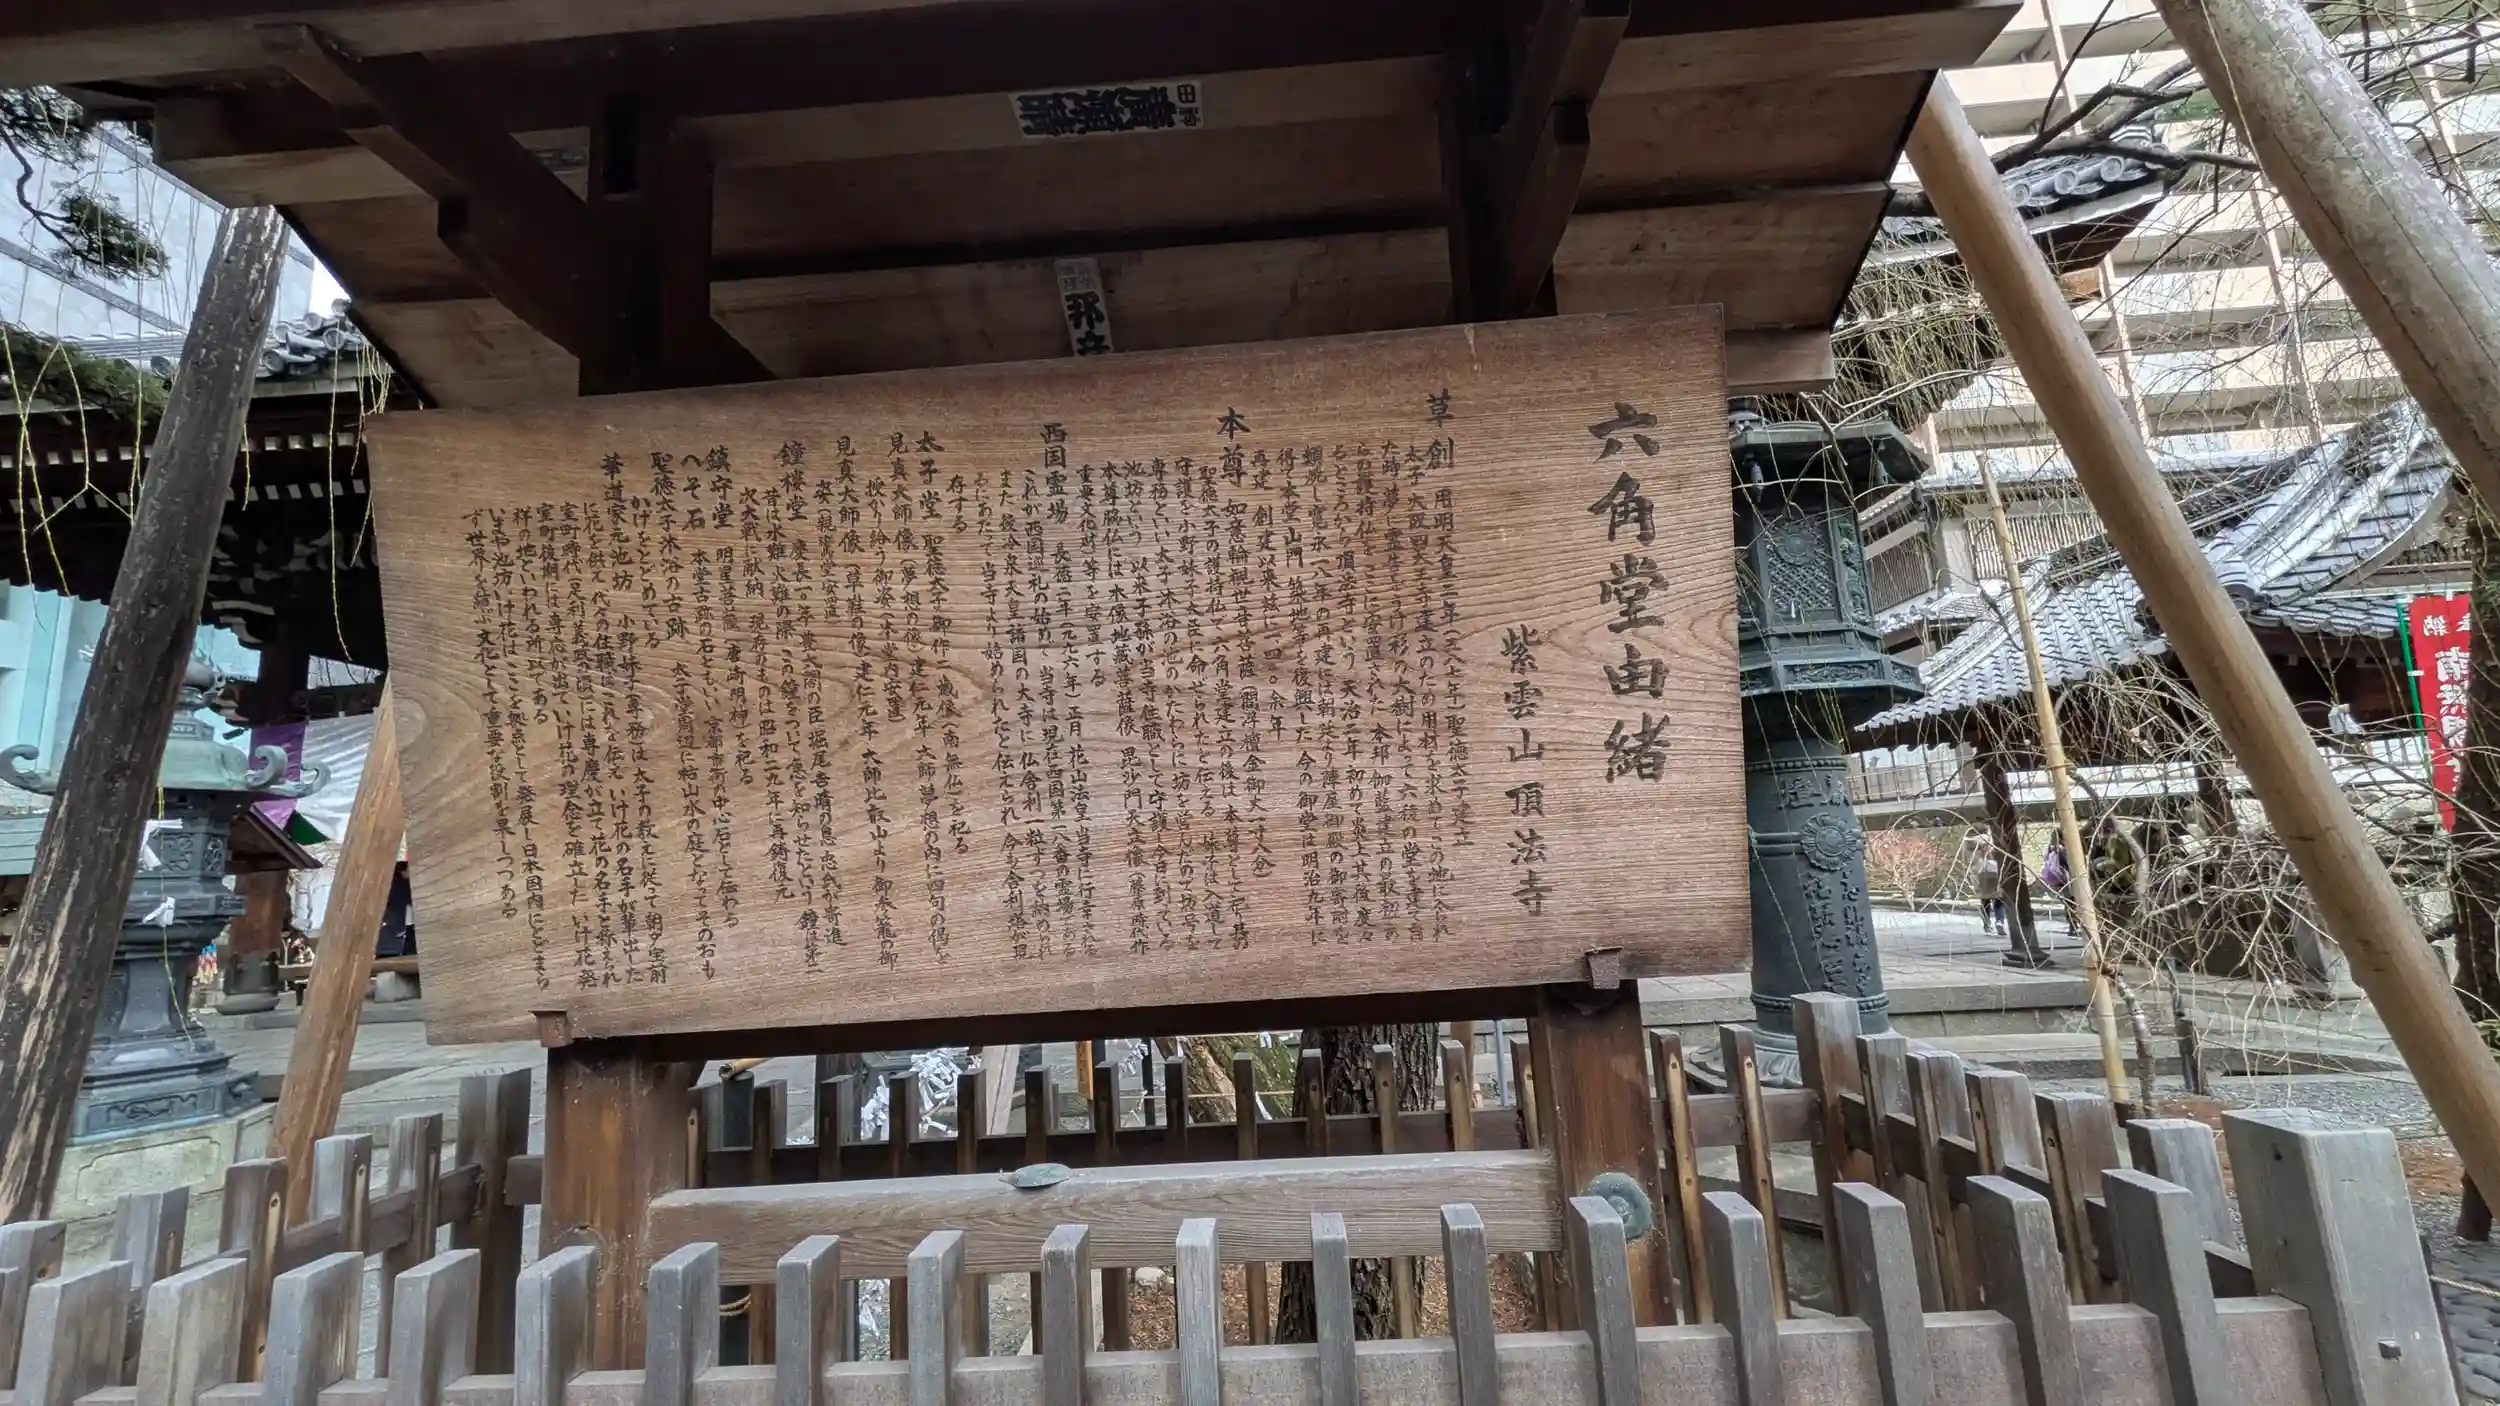 六角堂由緒
紫雲山 頂法寺
草創 用明天皇二年(五八七年)聖徳太子建立
太子 大阪四天王寺建立のため用材を求めてこの地に入られ
た時 夢に霊告をうけ 杉の大樹によって六稜の堂を建て 自
らの護持仏をここに安置された 本邦伽藍建立の最初であ
るところから 頂法寺という 天治二年 初めて炎上 其後度々
類焼し 寛永十八年の再建には朝廷より陣屋御殿の御寄附を
得て本堂 山門 築地等を復興した 今の御堂は明治九年に
再建 創建以来絃に一四〇〇余年
本尊 如意輪観世音菩薩(閻浮檀金御丈一寸八分)
聖徳太子の護持仏で 六角堂建立の後は 本尊として祀り 其の
守護を小野妹子大臣に命ぜられたと伝える 妹子は入道して
専務といい 太子沐浴の池のかたわらに坊を営んだので坊号を
池坊という 以来子孫が当寺住職として守護 今日に到っている
本尊脇仏には 木像地蔵菩薩像 毘沙門天立像(藤原時代作
重要文化財)等を安置する
西国霊場 長徳二年(九九六年)正月 花山法皇 当寺に行幸される
これが西国巡礼の始めで 当寺は現在西国第一八番の霊場である
また 後冷泉天皇 諸国の大寺に 仏舎利一粒ずつを納められ
るにあたって 当寺より始められたと伝えられ 今も舎利塔が現
存する
太子堂 聖徳太子御作二歳像(南無仏)を祀る
見真大師像(夢想の像)建仁元年 大師夢想の内に四句の偈を
授かり給う御姿(本堂内安置)
見真大師像(草鞋の像)建仁元年 大師比叡山より御参籠の御
姿(親鸞堂安置)
鐘樓堂 慶長一〇年 豊太閤の臣堀尾吉晴の息 忠氏が寄進
昔は水難 火難の際 この鐘をついて急を知らせたという 鐘は第二
次大戦に献納 現存のものは昭和二九年に再鋳復元
鎮守堂 明星菩薩(唐崎明神)を祀る
へそ石 本堂古跡の石ともいい 京都市街の中心石として伝わる
聖徳太子沐浴の古跡 太子堂周辺に枯山水の庭となってそのおも
かげをとどめている
華道家元池坊 小野妹子(専務)は 太子の教えに従って 朝夕宝前
に花を供え 代々の住職はこれを伝え いけ花の名手が輩出した
室町時代(足利義政の頃)には専慶が立て花の名手と称えられ
室町後期には専応が出て いけ花の理念を確立した いけ花発
祥の地といわれる所以である
いまや池坊いけ花は ここを拠点として発展し 日本国内にとどまら
ず世界を結ぶ文化として重要な役割を果しつつある
奉納